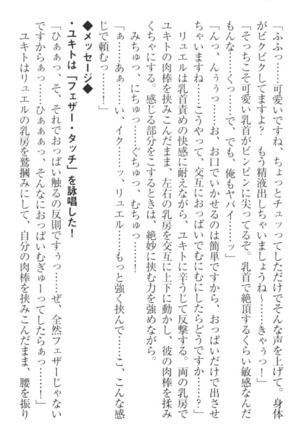 「ふふ……可愛いですね、ちょっとチュってしただけでそんな声を上げて。身体
がビクビクしてますよ? もう精液出しちゃいましょうね〜……きゃうっ!」
「そっちこそ可愛い乳首がビンビンに尖ってるぞ、乳首で絶頂するくらい敏感なんだ
もんな……くっ……で、でも、俺もヤバイ……ッ」
「んっ、んぅぅっ……お、お口でいかせるのは簡単ですから、おっぱいだけで出させ
ちゃいますね……こうやって、交互におっぱいでむにむにしたらどうですか……?」
リュエルは乳首責めの快感に耐えながら、ユキトに辛うじて反撃する。両の乳房で
ユキトの肉棒を挟みこんだまま、左右の乳房を交互に上下に動かし、彼の肉棒を揉み
くちゃにする。感じる部分をこするときは、絶妙に挟む力を強めながら。
みちゅっ、にちっ……ぐちゅっ、むちゅっ……!
「ぁ……あぁっ、い、イク……ッ、リュエル……もっと強く挟んで……こ、こんな感
じで頼むっ……!」
◆メッセージ◆
・ユキトは「フェザー・タッチ」を詠唱した!
「ひぁぁっ……そ、それでおっぱい触るの反則ですぅっ……ぜ、全然フェザーじゃない
ですからぁっ……! ひぁぁぁっ、そんなにおっぱいむぎゅーってしたらぁっ……!」
ユキトはリュエルの乳房を鷲掴みにして、自分の肉棒を挟みこんだまま、腰を振り